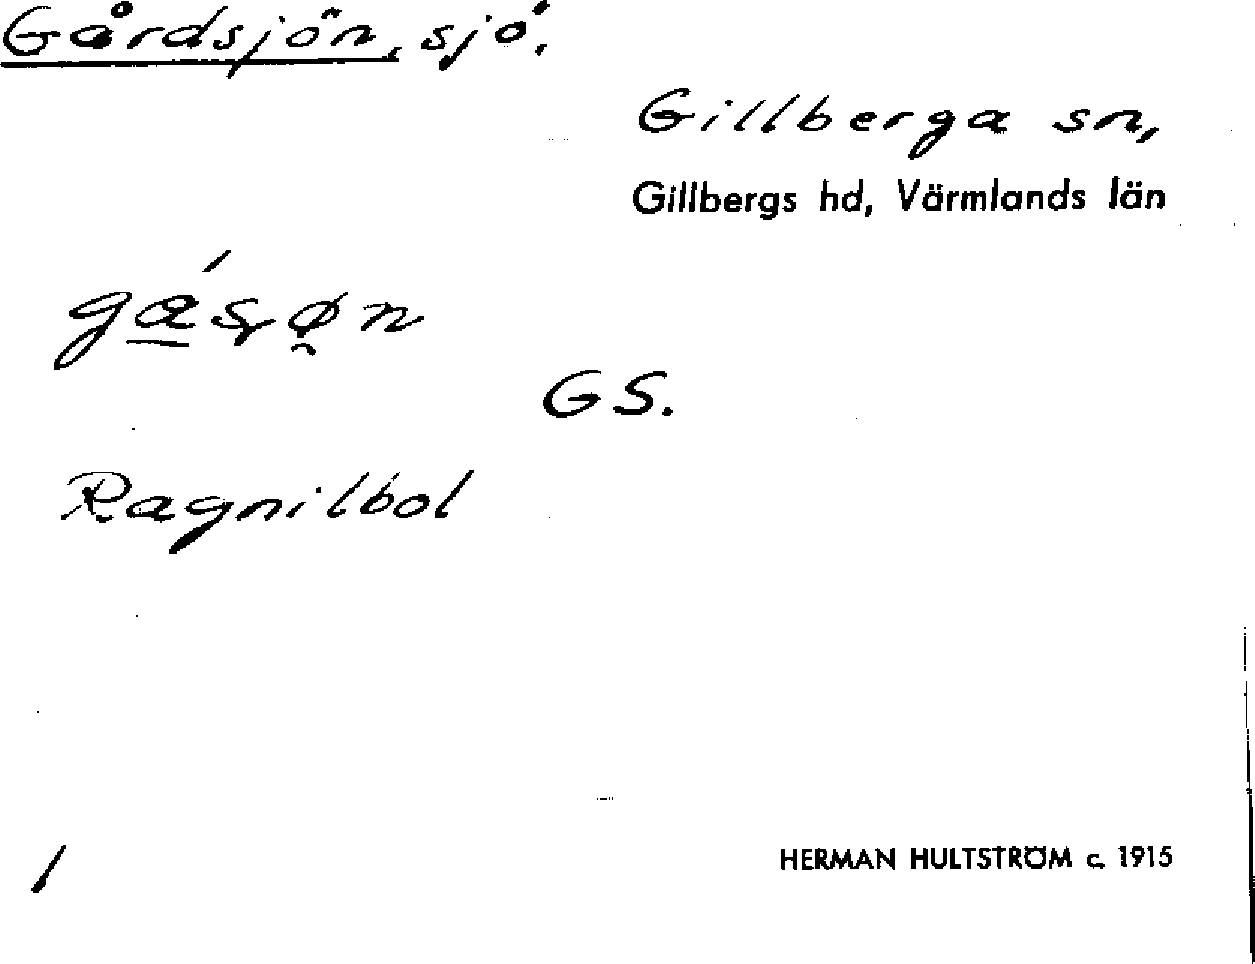 Gårdsjön, sjö,
Gillberga sn,
Gillbergs hd, Värmlands län
GS.
Ragnilbol
1
HERMAN HULTSTRÖM c. 1915